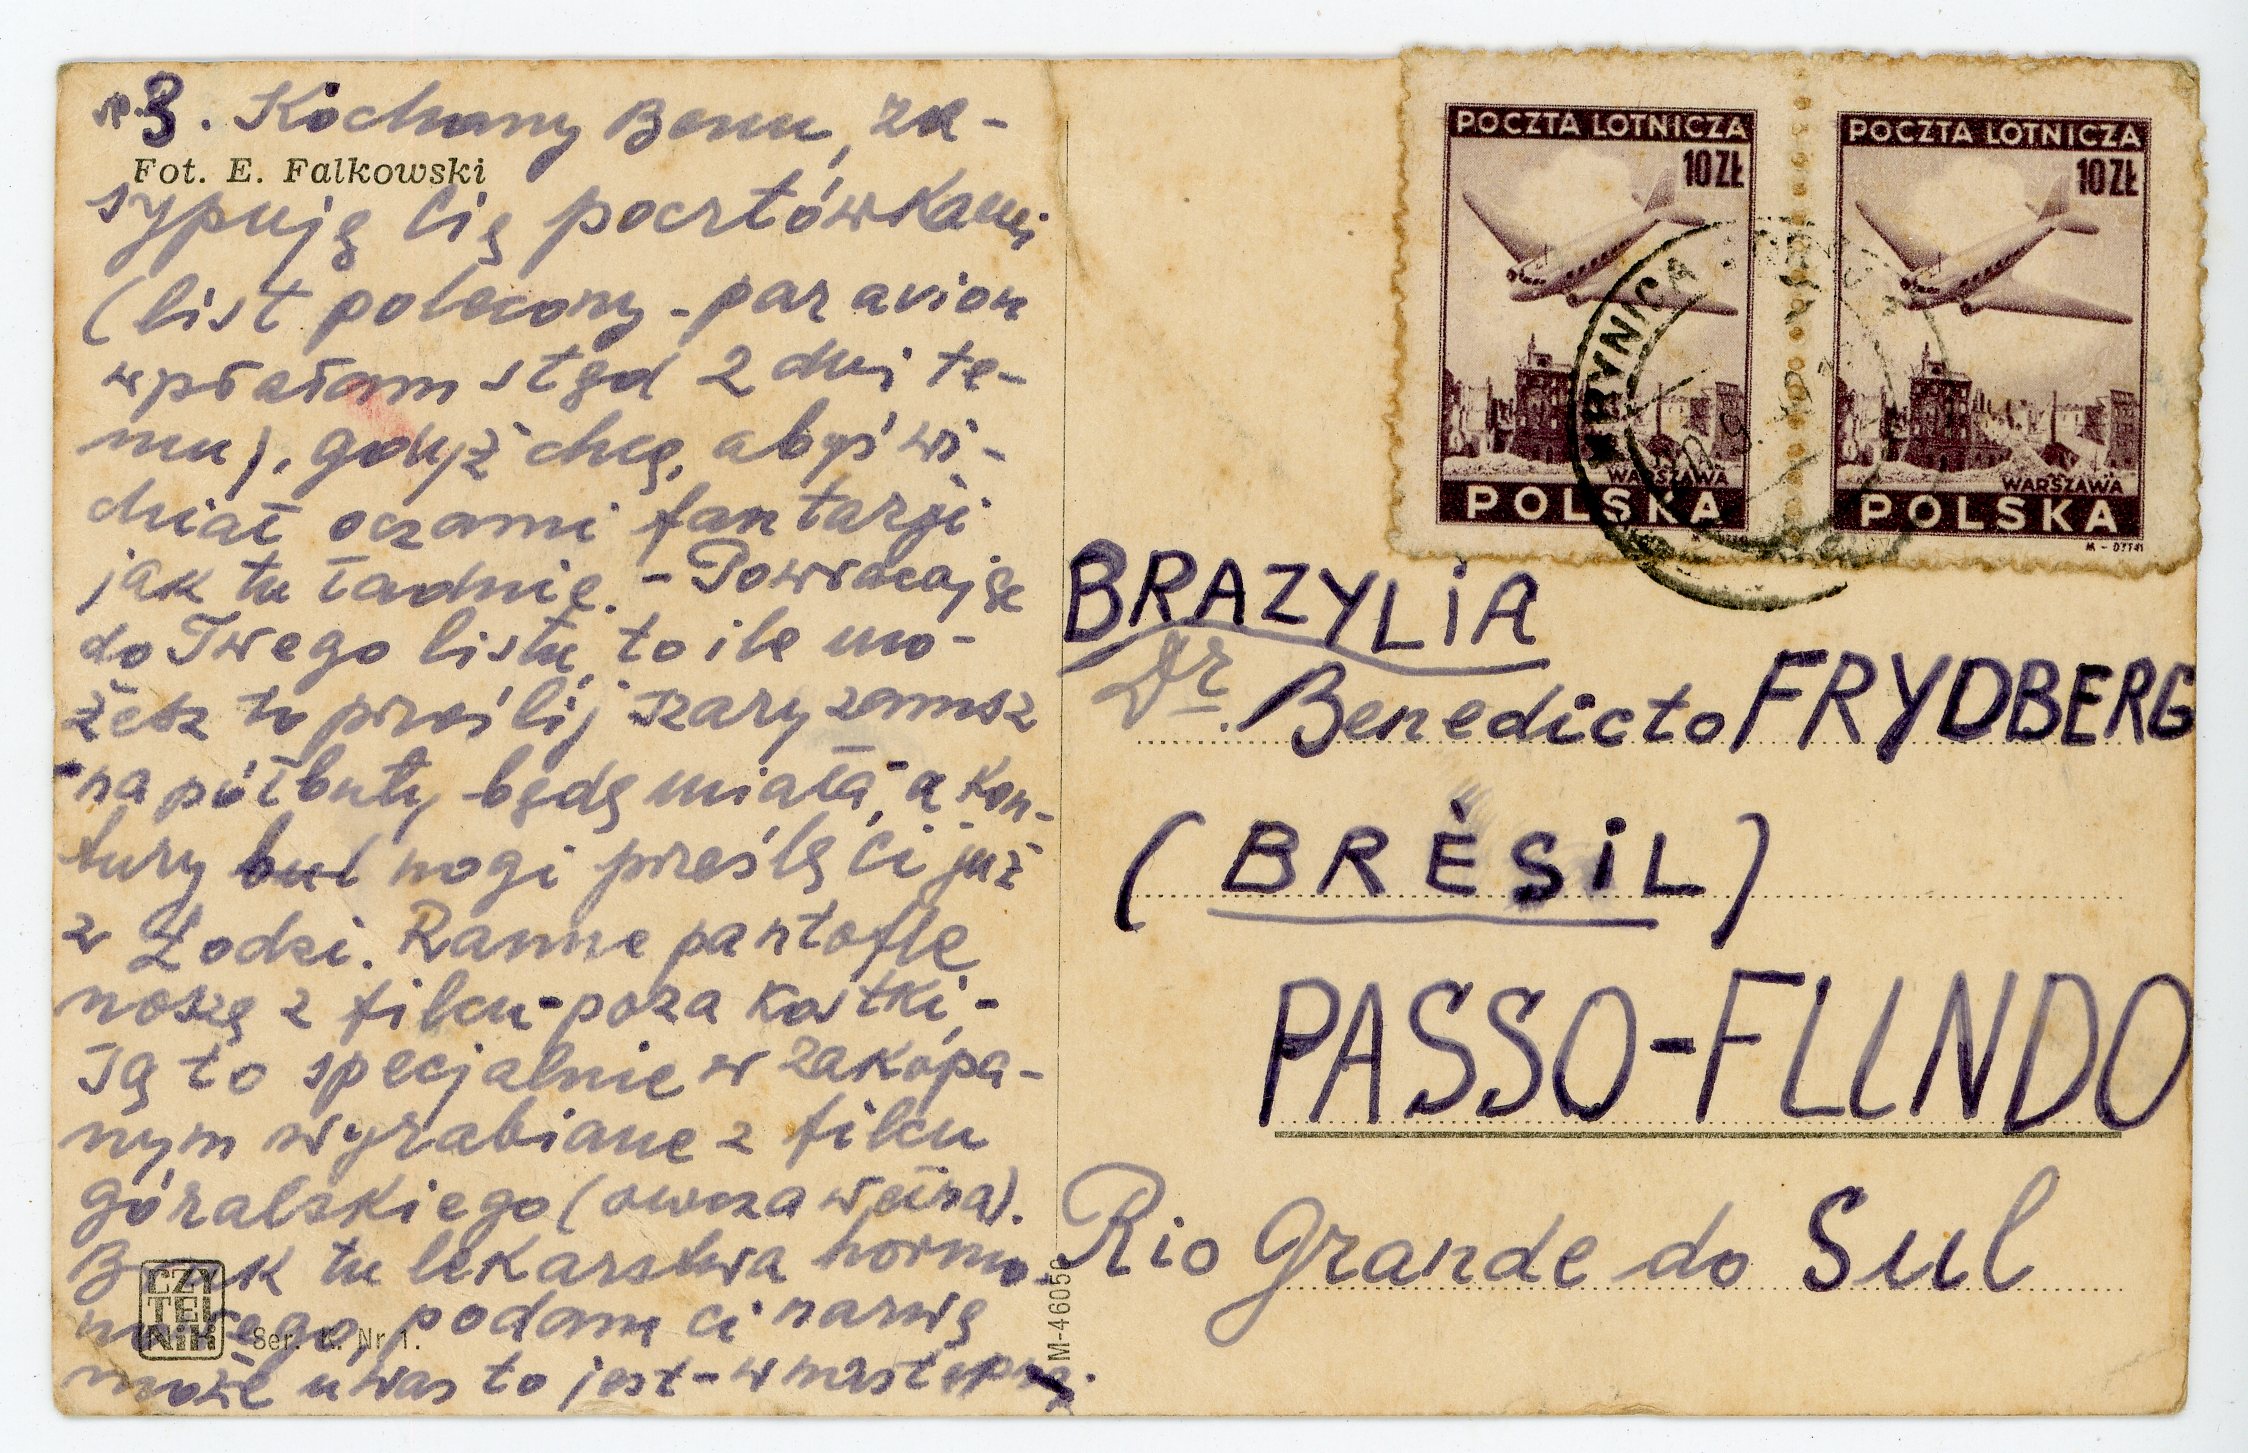 3. Kochany Benu, za-
Fot. E. Falkowski
sypuję Cię pocztówkami
(list polecony - par avion
wysłałam stąd 2 dni te-
mu), gdyż chcę, abyś wi-
dział oczami fantazji
jak tu ładnie. - Powracając
do Twego listu, to ile mo-
żesz to prześlij szary zamsz
na półbuty będę miała, a kon-
tury but nogi prześlę Ci już
z Łodzi. Ranne pantofle
noszę z filcu - poza kostki, -
są to specjalnie w Zakopa-
nym wyrabiane z filcu
góralskiego (owcza wełna).
Brak tu lekarstwa hormo-
nalnego, podam ci nazwę
może u was to jest - w następnej.
CZY
TEL
NIK
Ser. K. Nr 1.
M-46056
POCZTA LOTNICZA
10 ZŁ
WARSZAWA
POLSKA
M - 07741
POCZTA LOTNICZA
10 ZŁ
WARSZAWA
POLSKA
M - 07741
KRYNICA
BRAZYLiA
Dr. Benedicto FRYDBERG
(BRÈSiL)
PASSO-FUNDO
Rio Grande do Sul